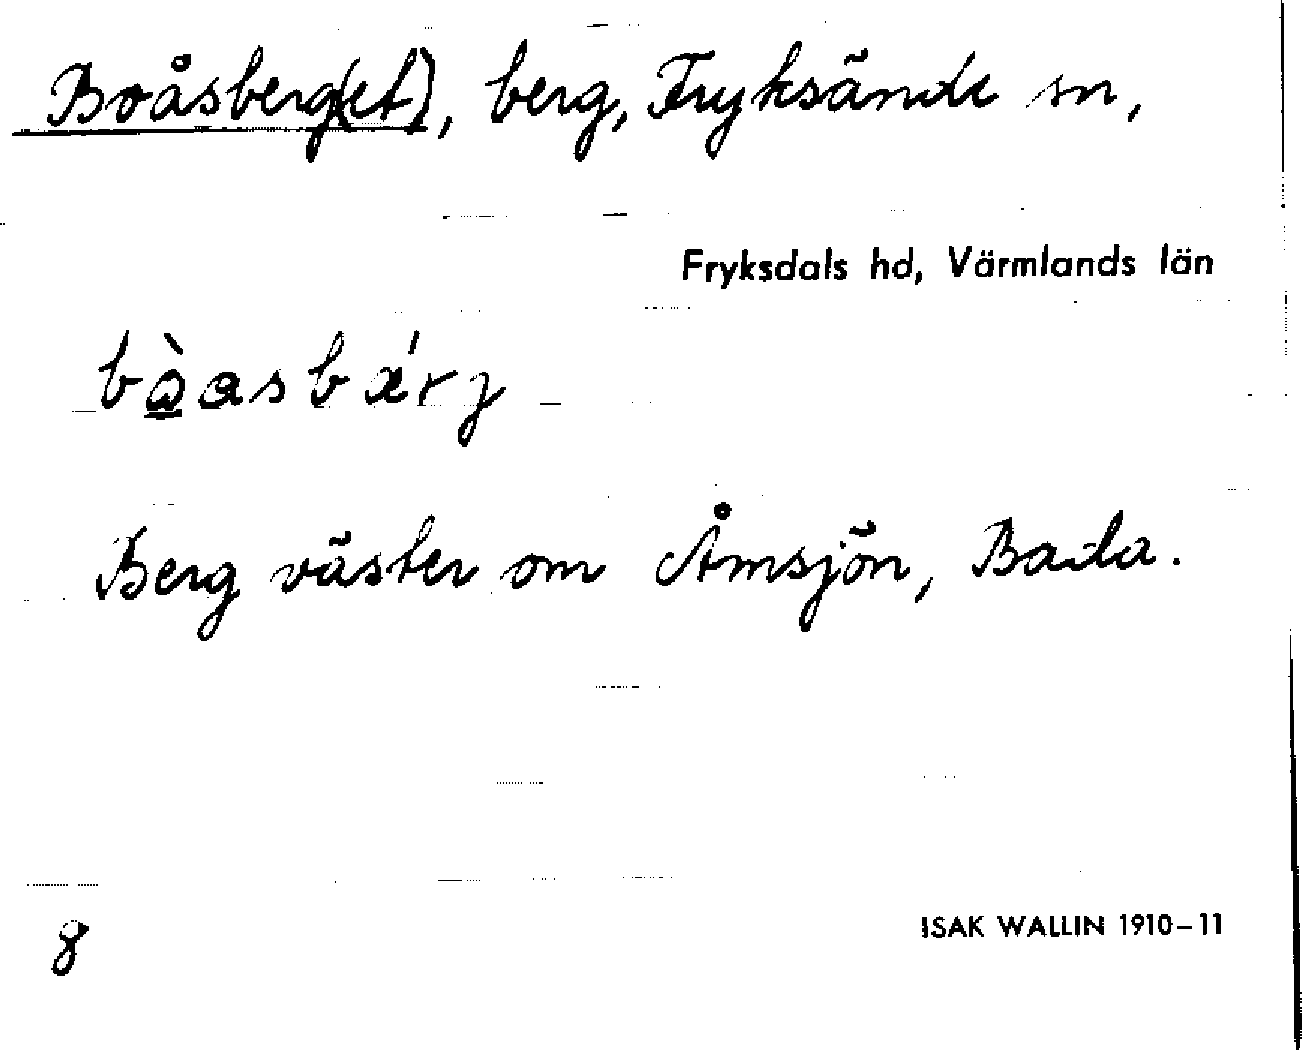 Boåsberg(et), berg, Fryksände sn,
Fryksdals hd, Värmlands län
Berg väster om Åmsjön, Bada.
8
ISAK WALLIN 1910–11